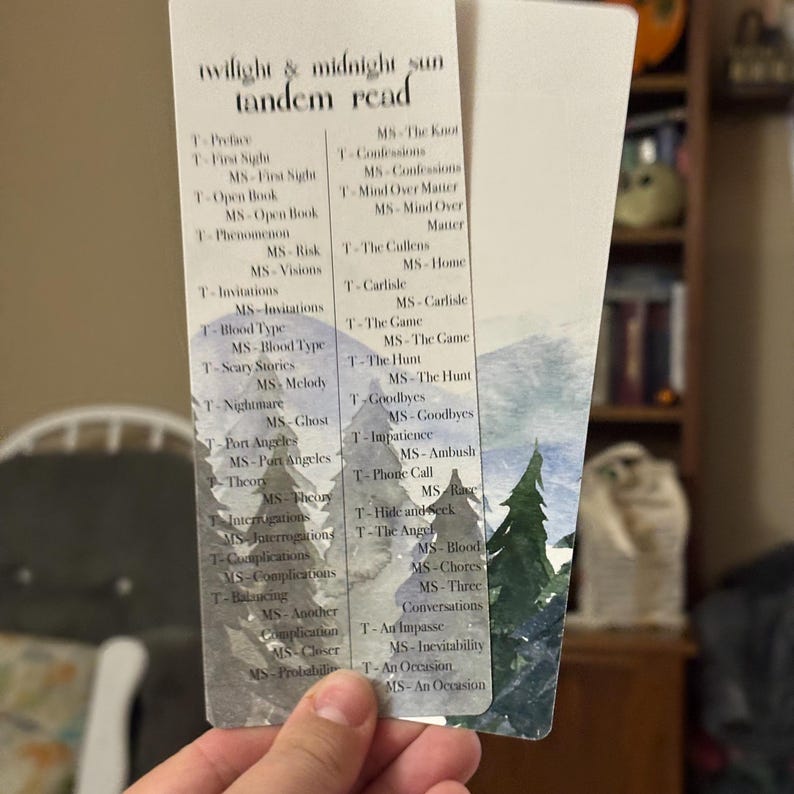 twilight & midnight sun
tandem read
T - Preface
T - First Sight
MS - First Sight
T - Open Book
MS - Open Book
T - Phenomenon
MS - Risk
MS - Visions
T - Invitations
MS - Invitations
T - Blood Type
MS - Blood Type
T - Scary Stories
MS - Melody
T - Nightmare
MS - Ghost
T - Port Angeles
MS - Port Angeles
T - Theory
MS - Theory
T - Interrogations
MS - Interrogations
T - Complications
MS - Complications
T - Balancing
MS - Another
Complication
MS - Closer
MS - Probability
MS - The Knot
T - Confessions
MS - Confessions
T - Mind Over Matter
MS - Mind Over
Matter
T - The Cullens
MS - Home
T - Carlisle
MS - Carlisle
T - The Game
MS - The Game
T - The Hunt
MS - The Hunt
T - Goodbyes
MS - Goodbyes
T - Impatience
MS - Ambush
T - Phone Call
MS - Race
T - Hide and Seek
T - The Angel
MS - Blood
MS - Chores
MS - Three
Conversations
T - An Impasse
MS - Inevitability
T - An Occasion
MS - An Occasion